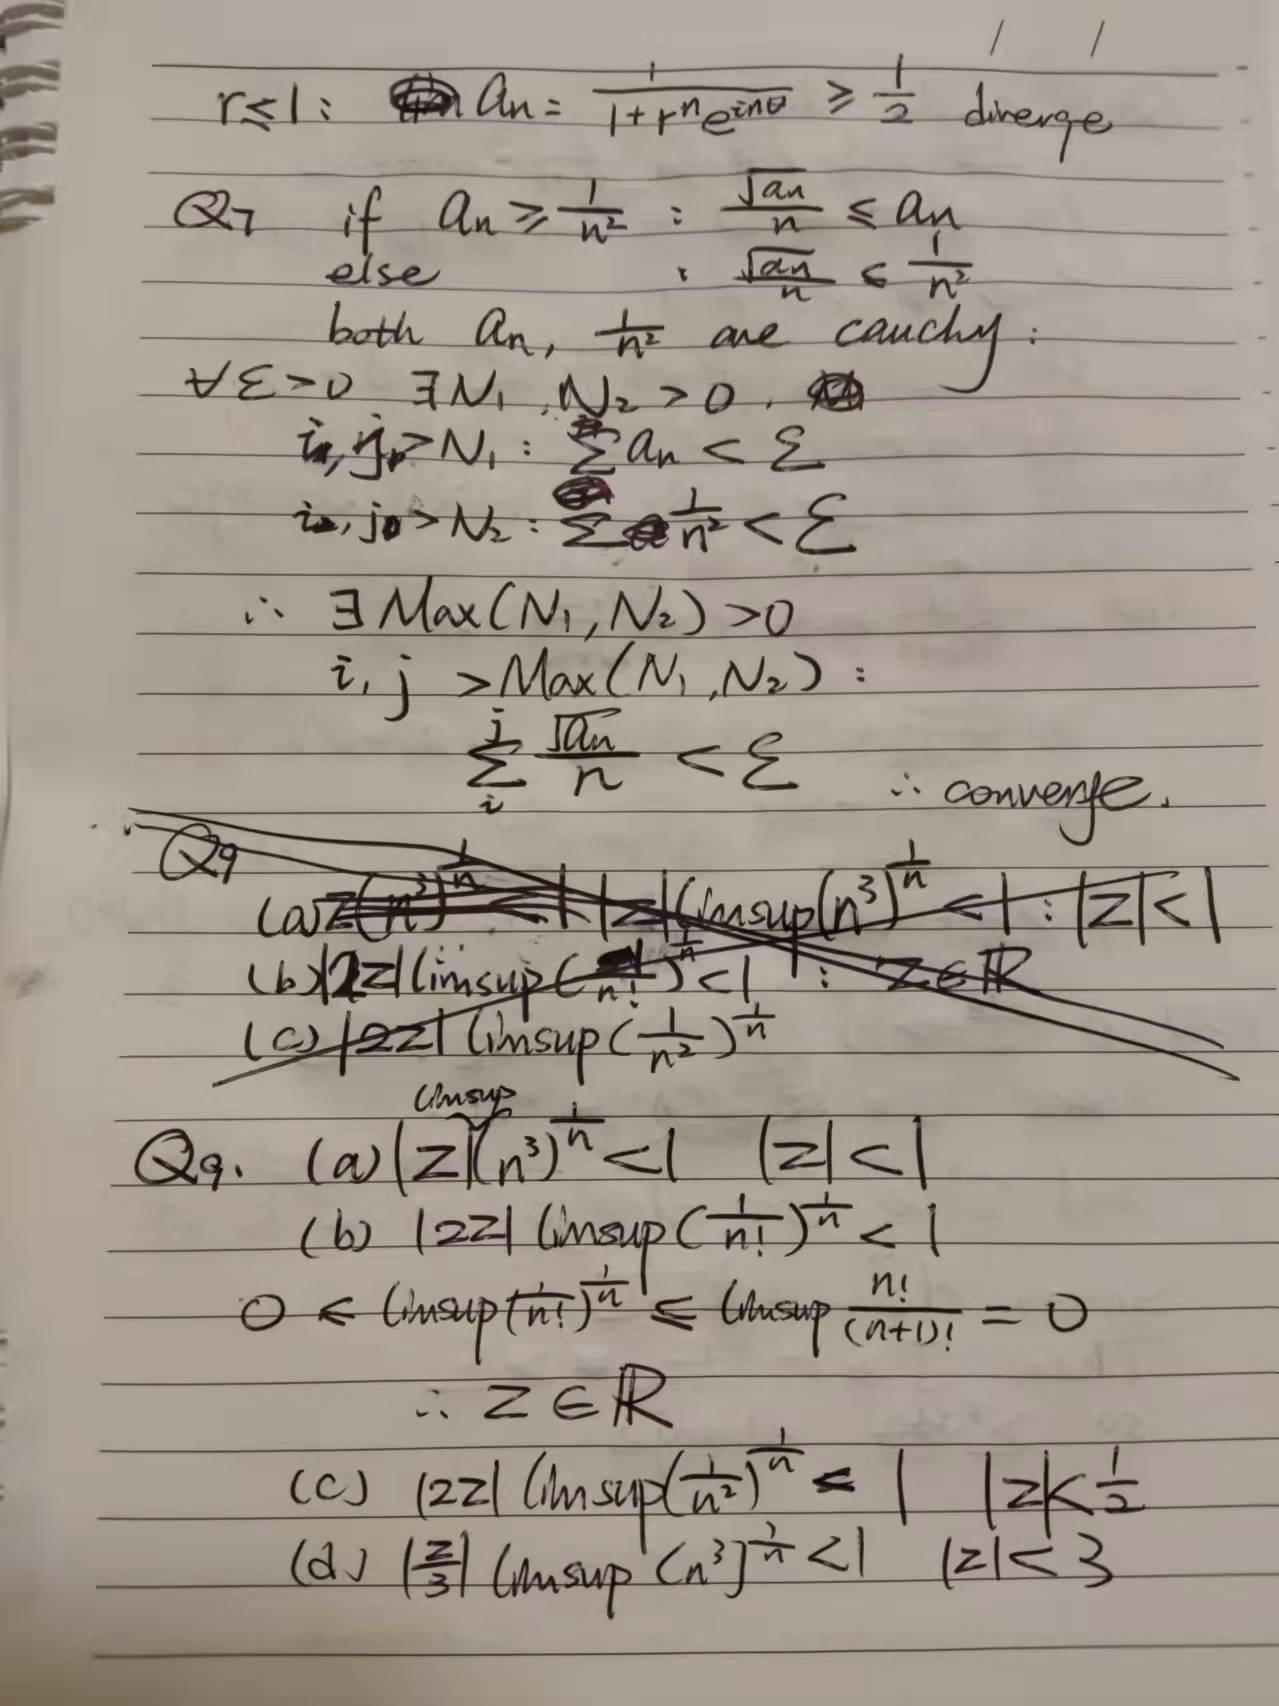 r≤1: aₙ = 1/(1+rⁿe^{inθ}) ≥ 1/2 diverge
Q7 if aₙ ≥ 1/n² : √aₙ/n ≤ aₙ
else : √aₙ/n ≤ 1/n²
both aₙ, 1/n² are cauchy:
∀ε>0 ∃N₁, N₂>0,
i, j > N₁: Σ aₙ < ε
i, j > N₂: Σ 1/n² < ε
∴ ∃ Max(N₁, N₂) >0
i, j > Max(N₁, N₂) :
Σᵢʲ √aₙ/n < ε ∴ converge.
Q9
(a) z(n³)^{1/n} < 1 |z| limsup(n³)^{1/n} < 1 : |z| < 1
(b) |2z| limsup(1/n!)^{1/n} < 1 : z∈ℝ
(c) |2z| limsup(1/n²)^{1/n}
limsup
Q9. (a) |z|(n³)^{1/n} < 1 |z| < 1
(b) |2z| limsup(1/n!)^{1/n} < 1
0 ≤ limsup(1/n!)^{1/n} ≤ limsup n!/(n+1)! = 0
∴ z ∈ ℝ
(c) |2z| limsup(1/n²)^{1/n} < 1 |z| < 1/2
(d) |z/3| limsup (n³)^{1/n} < 1 |z| < 3